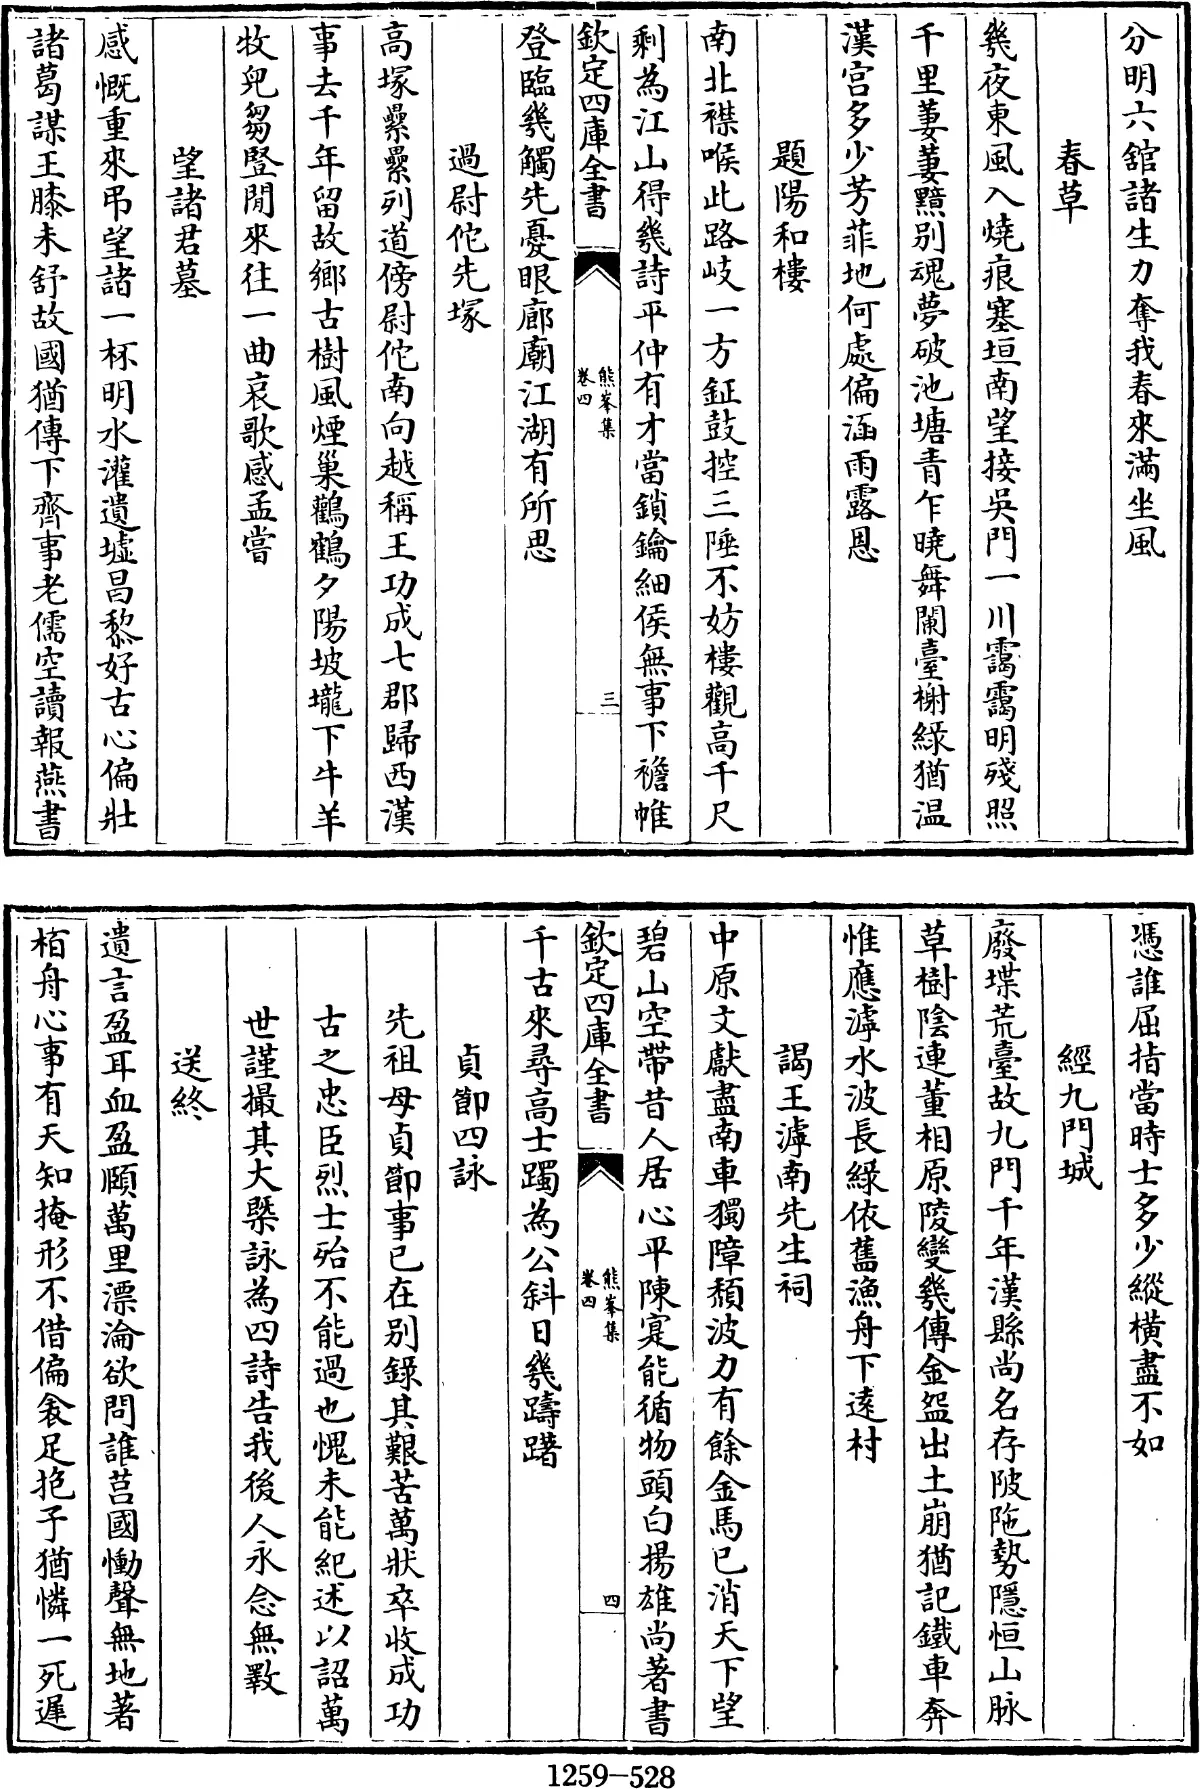 分明六舘諸生力奪我春來滿坐風
春草
幾夜東風入燒痕塞垣南望接吳門一川靄靄明殘照
千里萋萋黯別魂夢破池塘青乍曉舞闌臺榭綠猶温
漢宫多少芳菲地何處偏涵雨露恩
題陽和樓
南北襟喉此路岐一方鉦鼓控三陲不妨樓觀高千尺
剩為江山得幾詩平仲有才當鎖鑰細侯無事下襜帷
欽定四庫全書
熊峯集
卷四
三
登臨幾觸先憂眼廊廟江湖有所思
過尉佗先塚
高塚纍纍列道傍尉佗南向越稱王功成七郡歸西漢
事去千年留故鄉古樹風煙巢鸛鶴夕陽坡壠下牛羊
牧兒芻豎閒來往一曲哀歌感孟嘗
望諸君墓
感慨重來弔望諸一杯明水灌遺墟昌黎好古心偏壯
諸葛謀王膝未舒故國猶傳下齊事老儒空讀報燕書
憑誰屈指當時士多少縱橫盡不如
經九門城
廢堞荒臺故九門千年漢縣尚名存陂陁勢隱恒山脉
草樹陰連董相原陵變幾傳金盌出土崩猶記鐵車奔
惟應滹水波長綠依舊漁舟下遠村
謁王滹南先生祠
中原文獻盡南車獨障頽波力有餘金馬已消天下望
碧山空帶昔人居心平陳寔能循物頭白揚雄尚著書
欽定四庫全書
熊峯集
卷四
四
千古來尋高士躅為公斜日幾躊躇
貞節四詠
先祖母貞節事已在别錄其艱苦萬狀卒收成功
古之忠臣烈士殆不能過也愧未能紀述以詔萬
世謹撮其大槩詠為四詩告我後人永念無斁
送終
遺言盈耳血盈頤萬里漂淪欲問誰莒國慟聲無地著
栢舟心事有天知掩形不借偏衾足抱子猶憐一死遲
1259—528